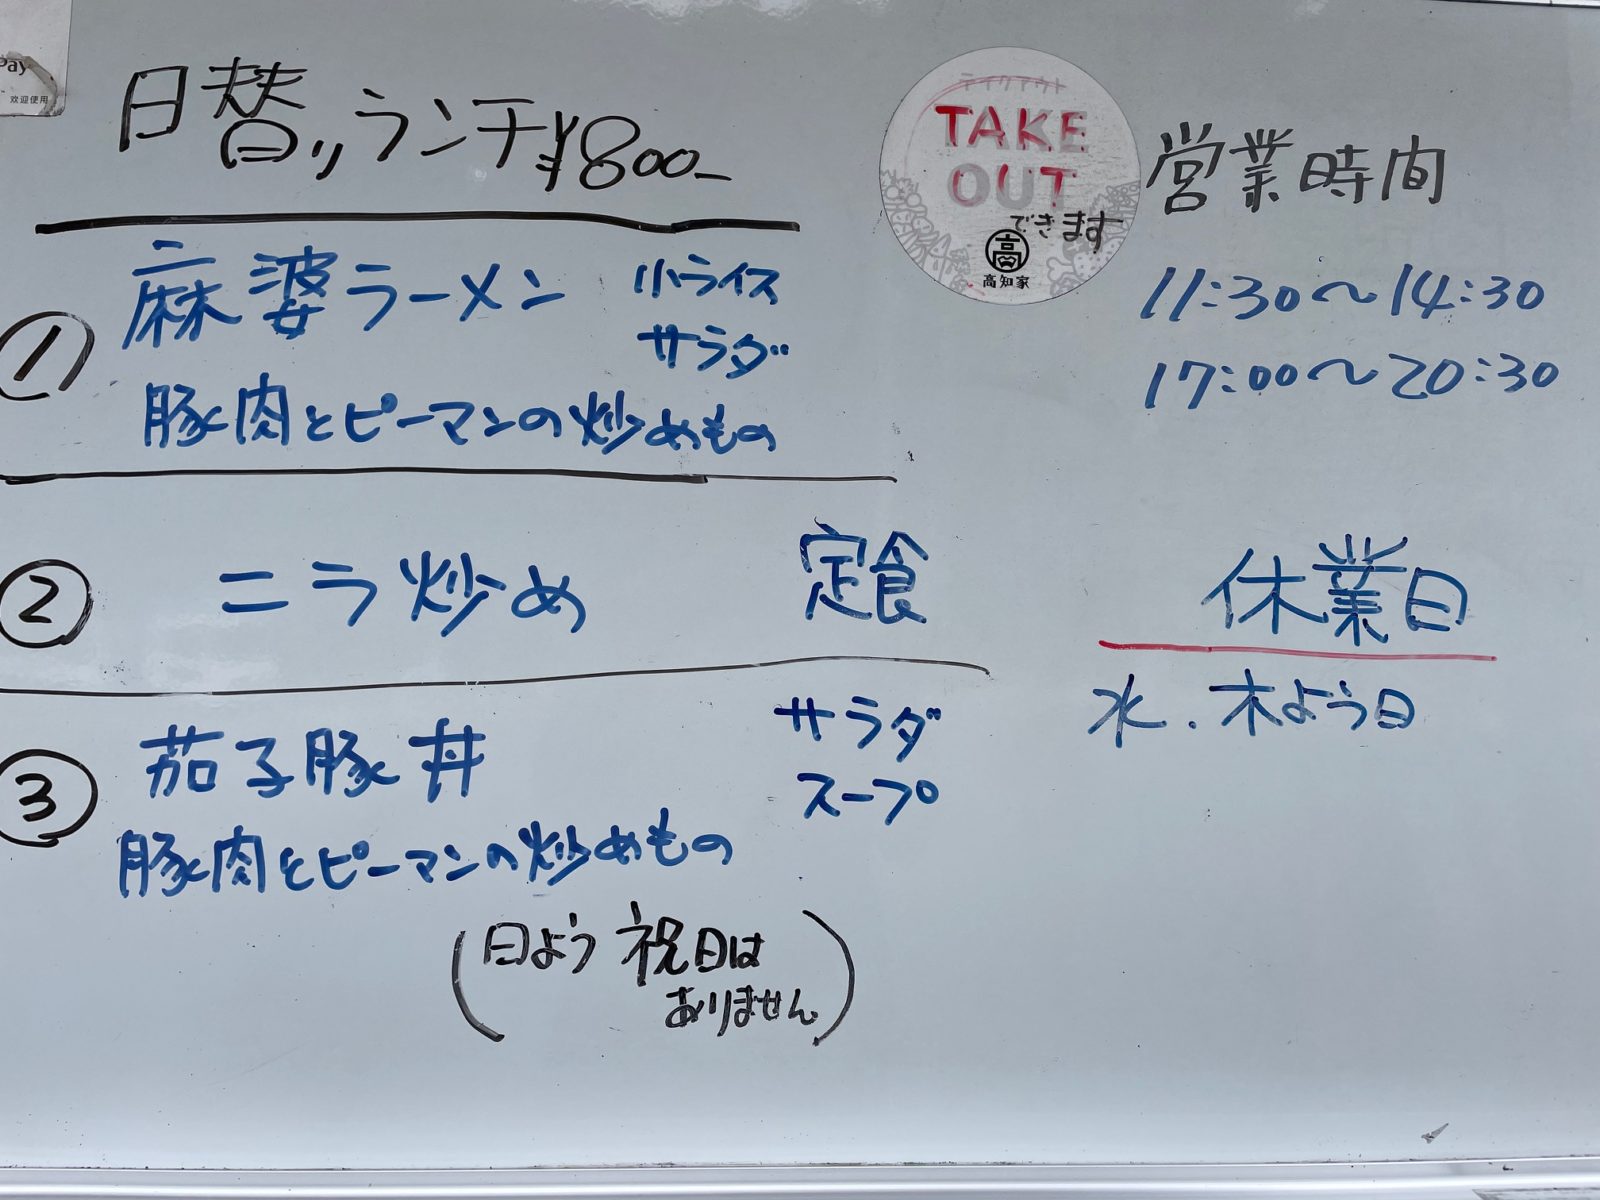 Pay
欢迎使用
日替りランチ ¥800-
① 麻婆ラーメン 小ライス
サラダ
豚肉とピーマンの炒めもの
② ニラ炒め 定食
③ 茄子豚丼 サラダ
スープ
豚肉とピーマンの炒めもの
(日よう 祝日は
ありません)
テイクアウト
TAKE
OUT
できます
高
高知家
営業時間
11:30〜14:30
17:00〜20:30
休業日
水.木よう日